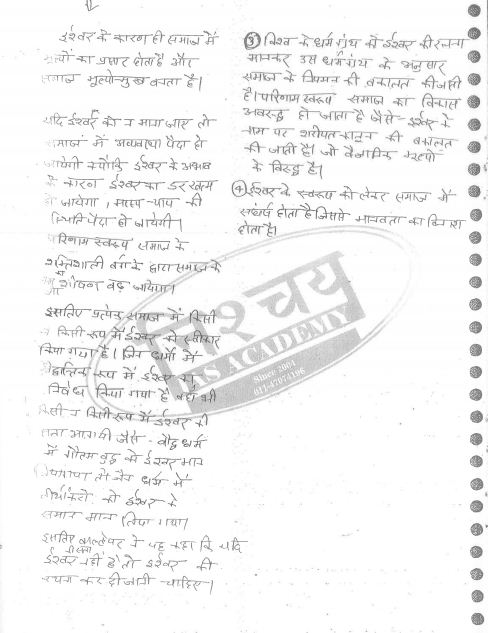 ईश्वर के कारण ही समाज में
मूल्यों का प्रसार होता है और
समाज मूल्योन्मुख बनता है।
यदि ईश्वर को न माना जाए तो
समाज में अव्यवस्था पैदा हो
जायेगी क्योंकि ईश्वर के अभाव
के कारण ईश्वर का डर खत्म
हो जायेगा,
स्थिति पैदा हो जायेगी।
परिणाम स्वरूप समाज के
शक्तिशाली वर्ग के द्वारा समाज के
शोषण बढ़ जायेगा।
इसलिए प्रत्येक समाज में किसी
न किसी रूप में ईश्वर को स्वीकार
किया गया है। जिन धर्मों में
सैद्धान्तिक रूप में ईश्वर का
निषेध किया गया है वहां भी
किसी न किसी रूप में ईश्वर की
सत्ता आ गयी जैसे - बौद्ध धर्म
में गौतम बुद्ध को ईश्वर मान
लिया गया तो जैन धर्म में
तीर्थंकरों को ईश्वर के
समान मान लिया गया।
इसलिए वाल्टेयर ने यह कहा कि यदि
ईश्वर नहीं है तो ईश्वर की
रचना कर दी जानी चाहिए।
③ विश्व के धर्म ग्रंथ को ईश्वर की रचना
मानकर उस धर्मग्रंथ के अनुसार
समाज के नियमन की वकालत की जाती
है। परिणाम स्वरूप समाज का विकास
अवरुद्ध हो जाता है जैसे - ईश्वर के
नाम पर शरीयत कानून की वकालत
की जाती है। जो वैज्ञानिक मूल्यों
के विरुद्ध है।
④ ईश्वर के स्वरूप को लेकर समाज में
संघर्ष होता है जिससे मानवता का विनाश
होता है।
निश्चय
IAS ACADEMY
Since 2004
011-47074196